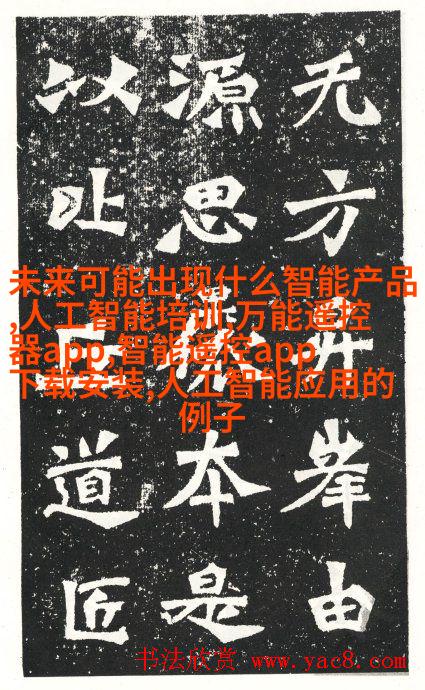 无方峯由
源思本是
以道匠
未来可能出现什么智能产品
,人工智能培训,万能遥控
器app,智能遥控app
下载安装,人工智能应用的
例子
书法欣赏 www.yac8.com